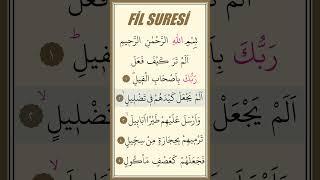 FİL SURESİ
بِسْمِ اللهِ الرَّحْمٰنِ الرَّحِيمِ
اَلَمْ تَرَ كَيْفَ فَعَلَ
رَبُّكَ بِاَصْحَابِ الْفِيلِ ﴿١﴾
اَلَمْ يَجْعَلْ كَيْدَهُمْ فِى تَضْلِيلٍ ﴿٢﴾
وَاَرْسَلَ عَلَيْهِمْ طَيْرًا اَبَابِيلَ ﴿٣﴾
تَرْمِيهِمْ بِحِجَارَةٍ مِنْ سِجِّيلٍ ﴿٤﴾
فَجَعَلَهُمْ كَعَصْفٍ مَأْكُولٍ ﴿٥﴾
رَبُّكَ
اَلَمْ يَجْعَلْ